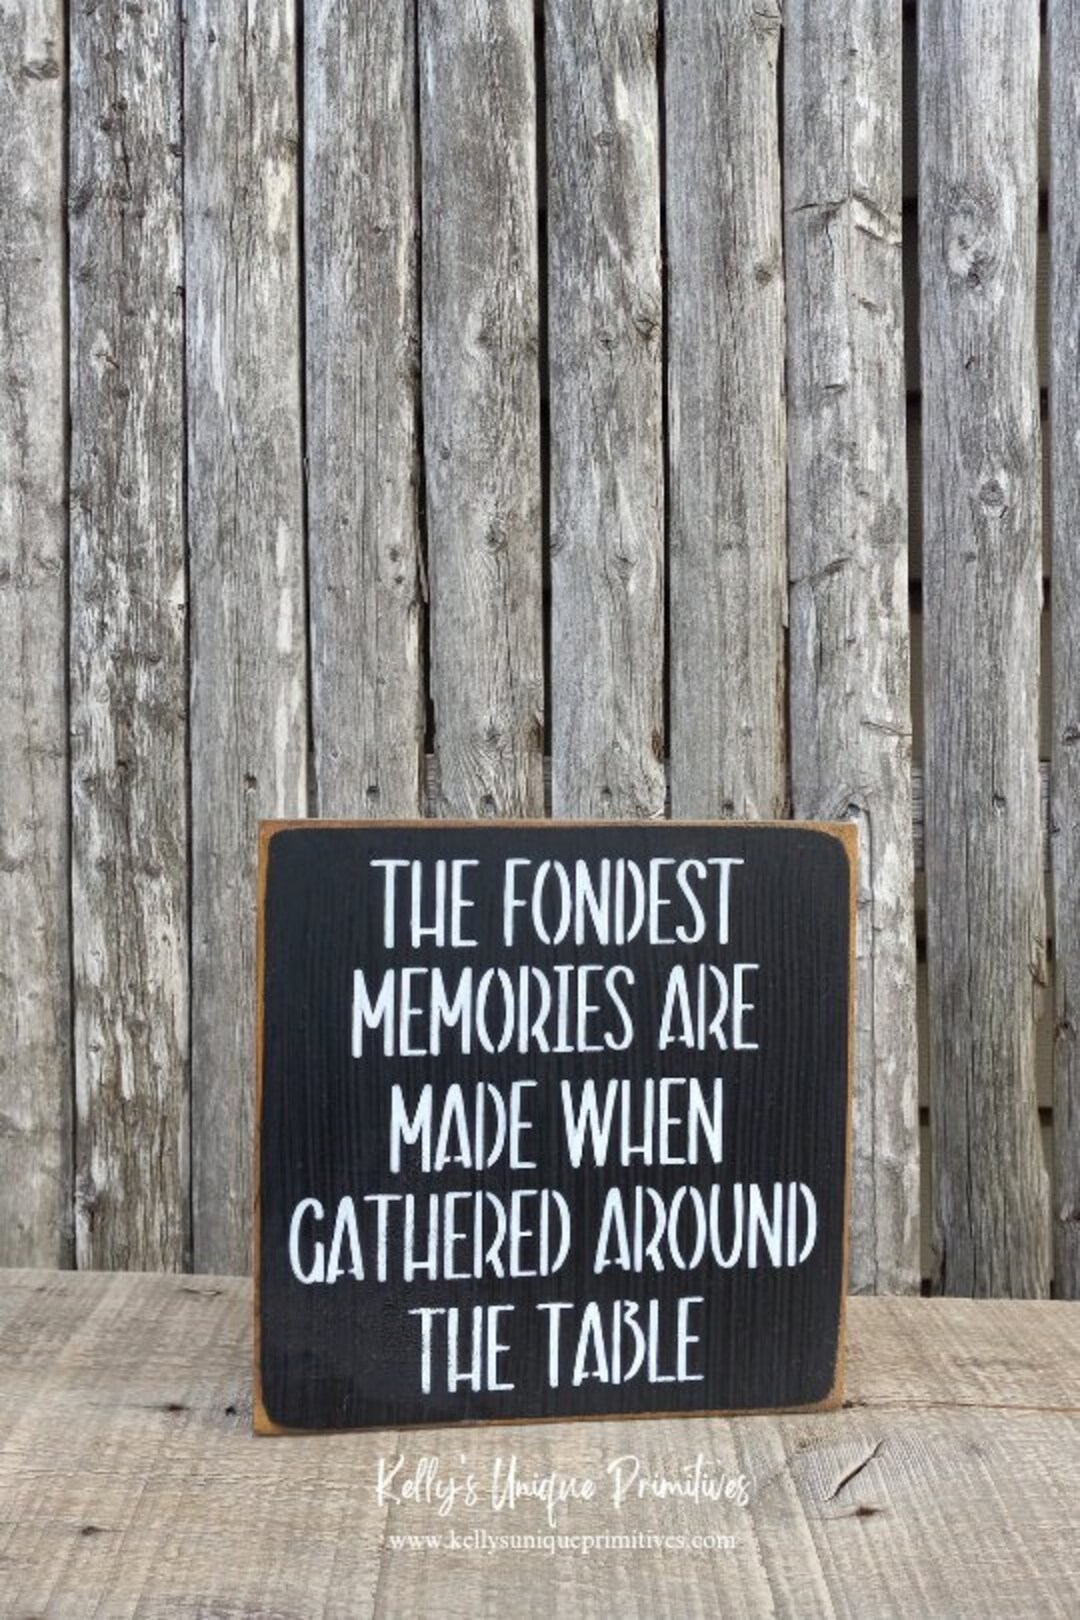 THE FONDEST
MEMORIES ARE
MADE WHEN
GATHERED AROUND
THE TABLE
Kelly's Unique Primitives
www.kellysuniqueprimitives.com